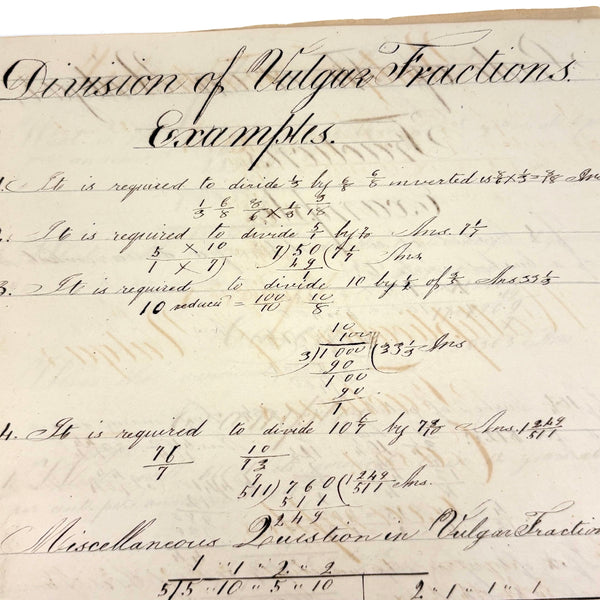 Division of Vulgar Fractions.
Examples.
1. It is required to divide 1/3 by 6/8 6/8 inverted is 8/6 × 1/3 = 8/18 Ans
1/3 6/8 8/6 × 1/3 8/18
2. It is required to divide 5/1 by 7/10 Ans. 7 1/7
5 × 10
1 × 7
7)50(7 1/7 Ans
49
1
3. It is required to divide 10 by of Ans 33 1/3
10 reduced = 100/10 10/8
10
3)1000(333 1/3 Ans
90
100
90
1
4. It is required to divide 10 by Ans. 1 249/511
71/7
511)760(1 249/511 Ans.
511
249
Miscellaneous Question in Vulgar Fraction
1 " 1 " 2 " 2
5)5 " 10 " 5 " 10
2 " 1 " 1 " 1